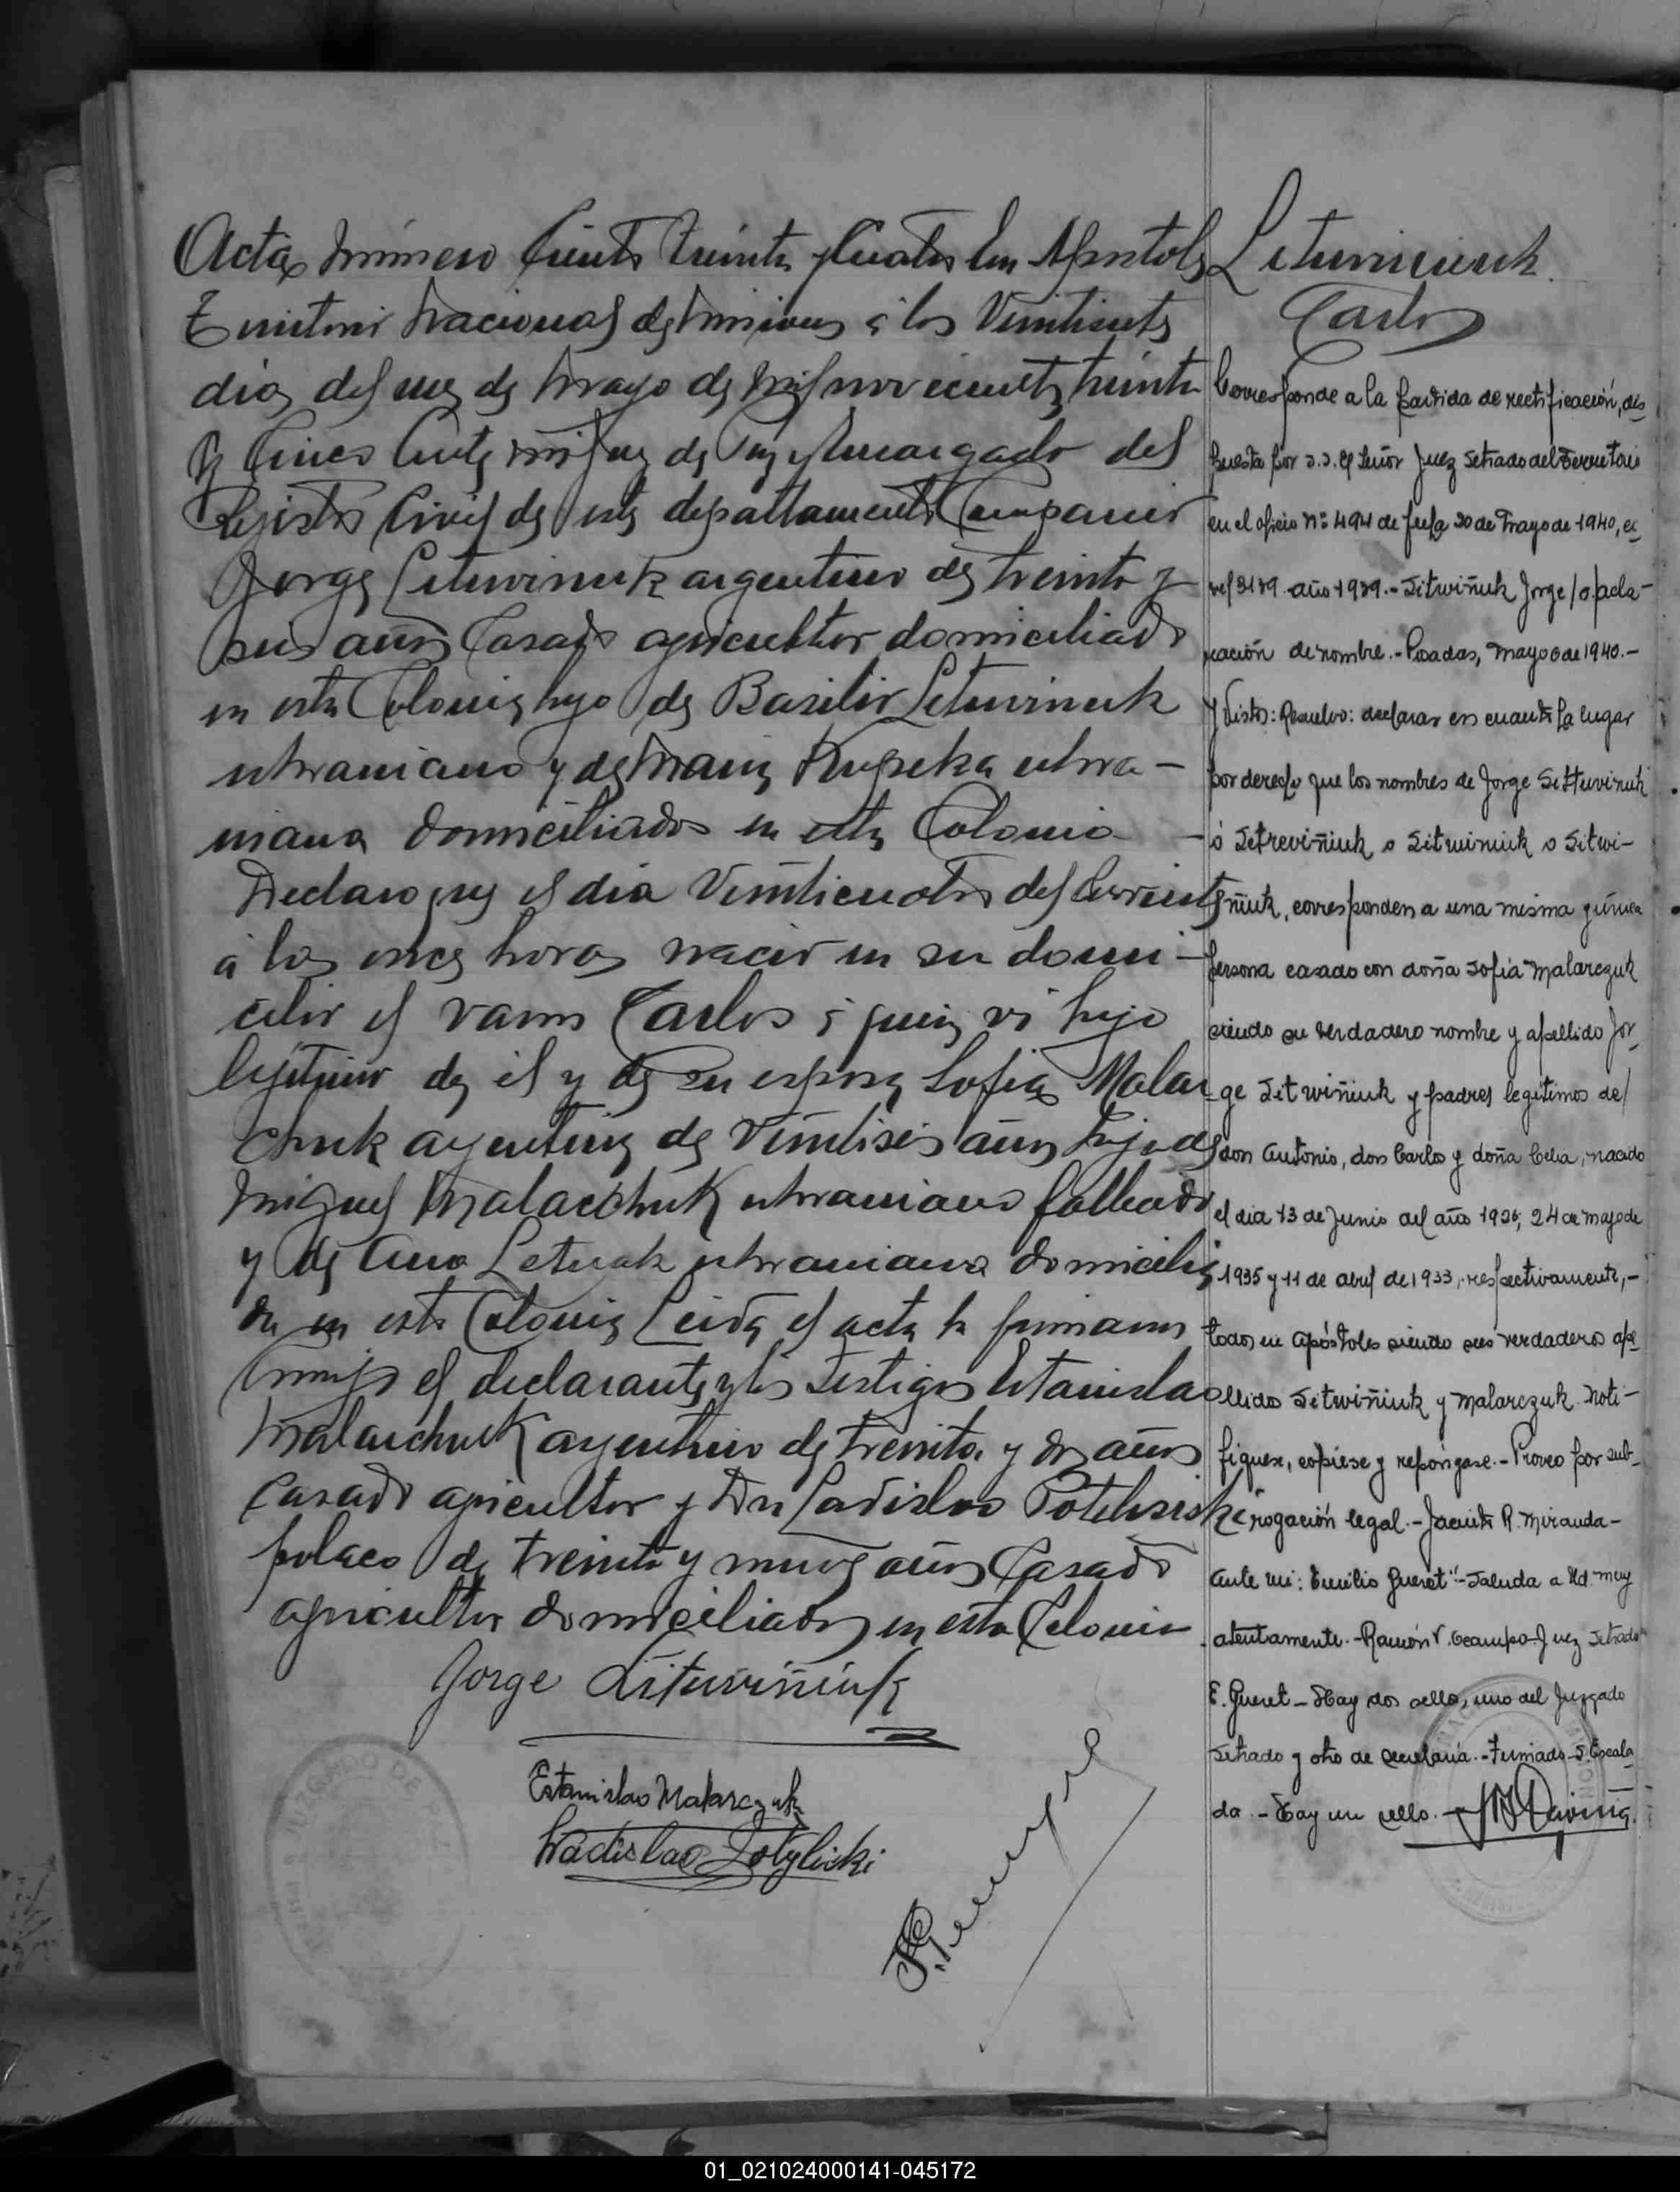 Acta número Ciento treinta y Cuatro En Apostoles
Territorio Nacional de Misiones á los Veintisiete
dias del mes de Mayo de Mil novecientos treinta
y Cinco Ante mi Juez de Paz y Encargado del
Registro Civil de este departamento Comparecio
Jorge Letuvinuk argentino de treinta y
seis años Casado agricultor domiciliado
en esta Colonia hijo de Basilio Letuvinuk
ukraniano y de Maria Kupska ukra-
niana domiciliados en esta Colonia -
Declaro que el dia Veinticuatro del Corriente
á las once horas nacio en su domi-
cilio el varon Carlos á quien vi hijo
lejitimo de él y de su esposa Sofia Malar-
chuk argentina de Veintiseis años hija de
Miguel Malarchuk ukraniano fallecido
y de Ana Letuak ukraniana domicilia
da en esta Colonia Leida el acta la firmaron
Conmigo el declarante y los testigos Estanislao
Malarchuk argentino de treinta y dos años
Casado agricultor y Don Ladislao Potelwiski
polaco de treinta y nueve años Casado
agricultor domiciliados en esta Colonia
Jorge Lituwiñiuk
Estanislao Malarczuk
Wladislao Potyliski
Lituwiniuk
Carlos
Corresponde a la partida de rectificación, dis
puesta por S.S. el Señor Juez Letrado del Territorio
en el oficio Nº 494 de fecha 30 de Mayo de 1940, ex
ref 3189 año 1939.- Litwiñuk Jorge s/o. acla-
ración de nombre.- Posadas, Mayo 6 de 1940.-
Y Vistos: Resuelvo: declarar en cuanto ha lugar
por derecho que los nombres de Jorge Littuvinuk
ó Letreviñuk o Litwiniuk o Litwi-
ñuk, corresponden a una misma y única
persona casado con doña Sofía Malarczuk
siendo su verdadero nombre y apellido Jor
ge Litwiñiuk y padres legítimos de/
don Antonio, don Carlos y doña Celia, nacido
el dia 13 de Junio del año 1926; 24 de Mayo de
1935 y 11 de abril de 1933, respectivamente,-
todos en Apóstoles siendo sus verdaderos ape
llidos Litwiñiuk y Malarczuk. Noti-
fiquese, cópiese y repóngase.- Proveo por sub-
rogación legal.- Jacinto R. Miranda-
Ante mi: Emilio Gueret".- Saluda a Ud. muy
atentamente.- Ramón V. Ocampo Juez Letrado
E. Gueret - Hay dos sellos, uno del Juzgado
Letrado y otro de secretaria.- Firmado - S. Escala
da.- Hay un sello.-
01_021024000141-045172